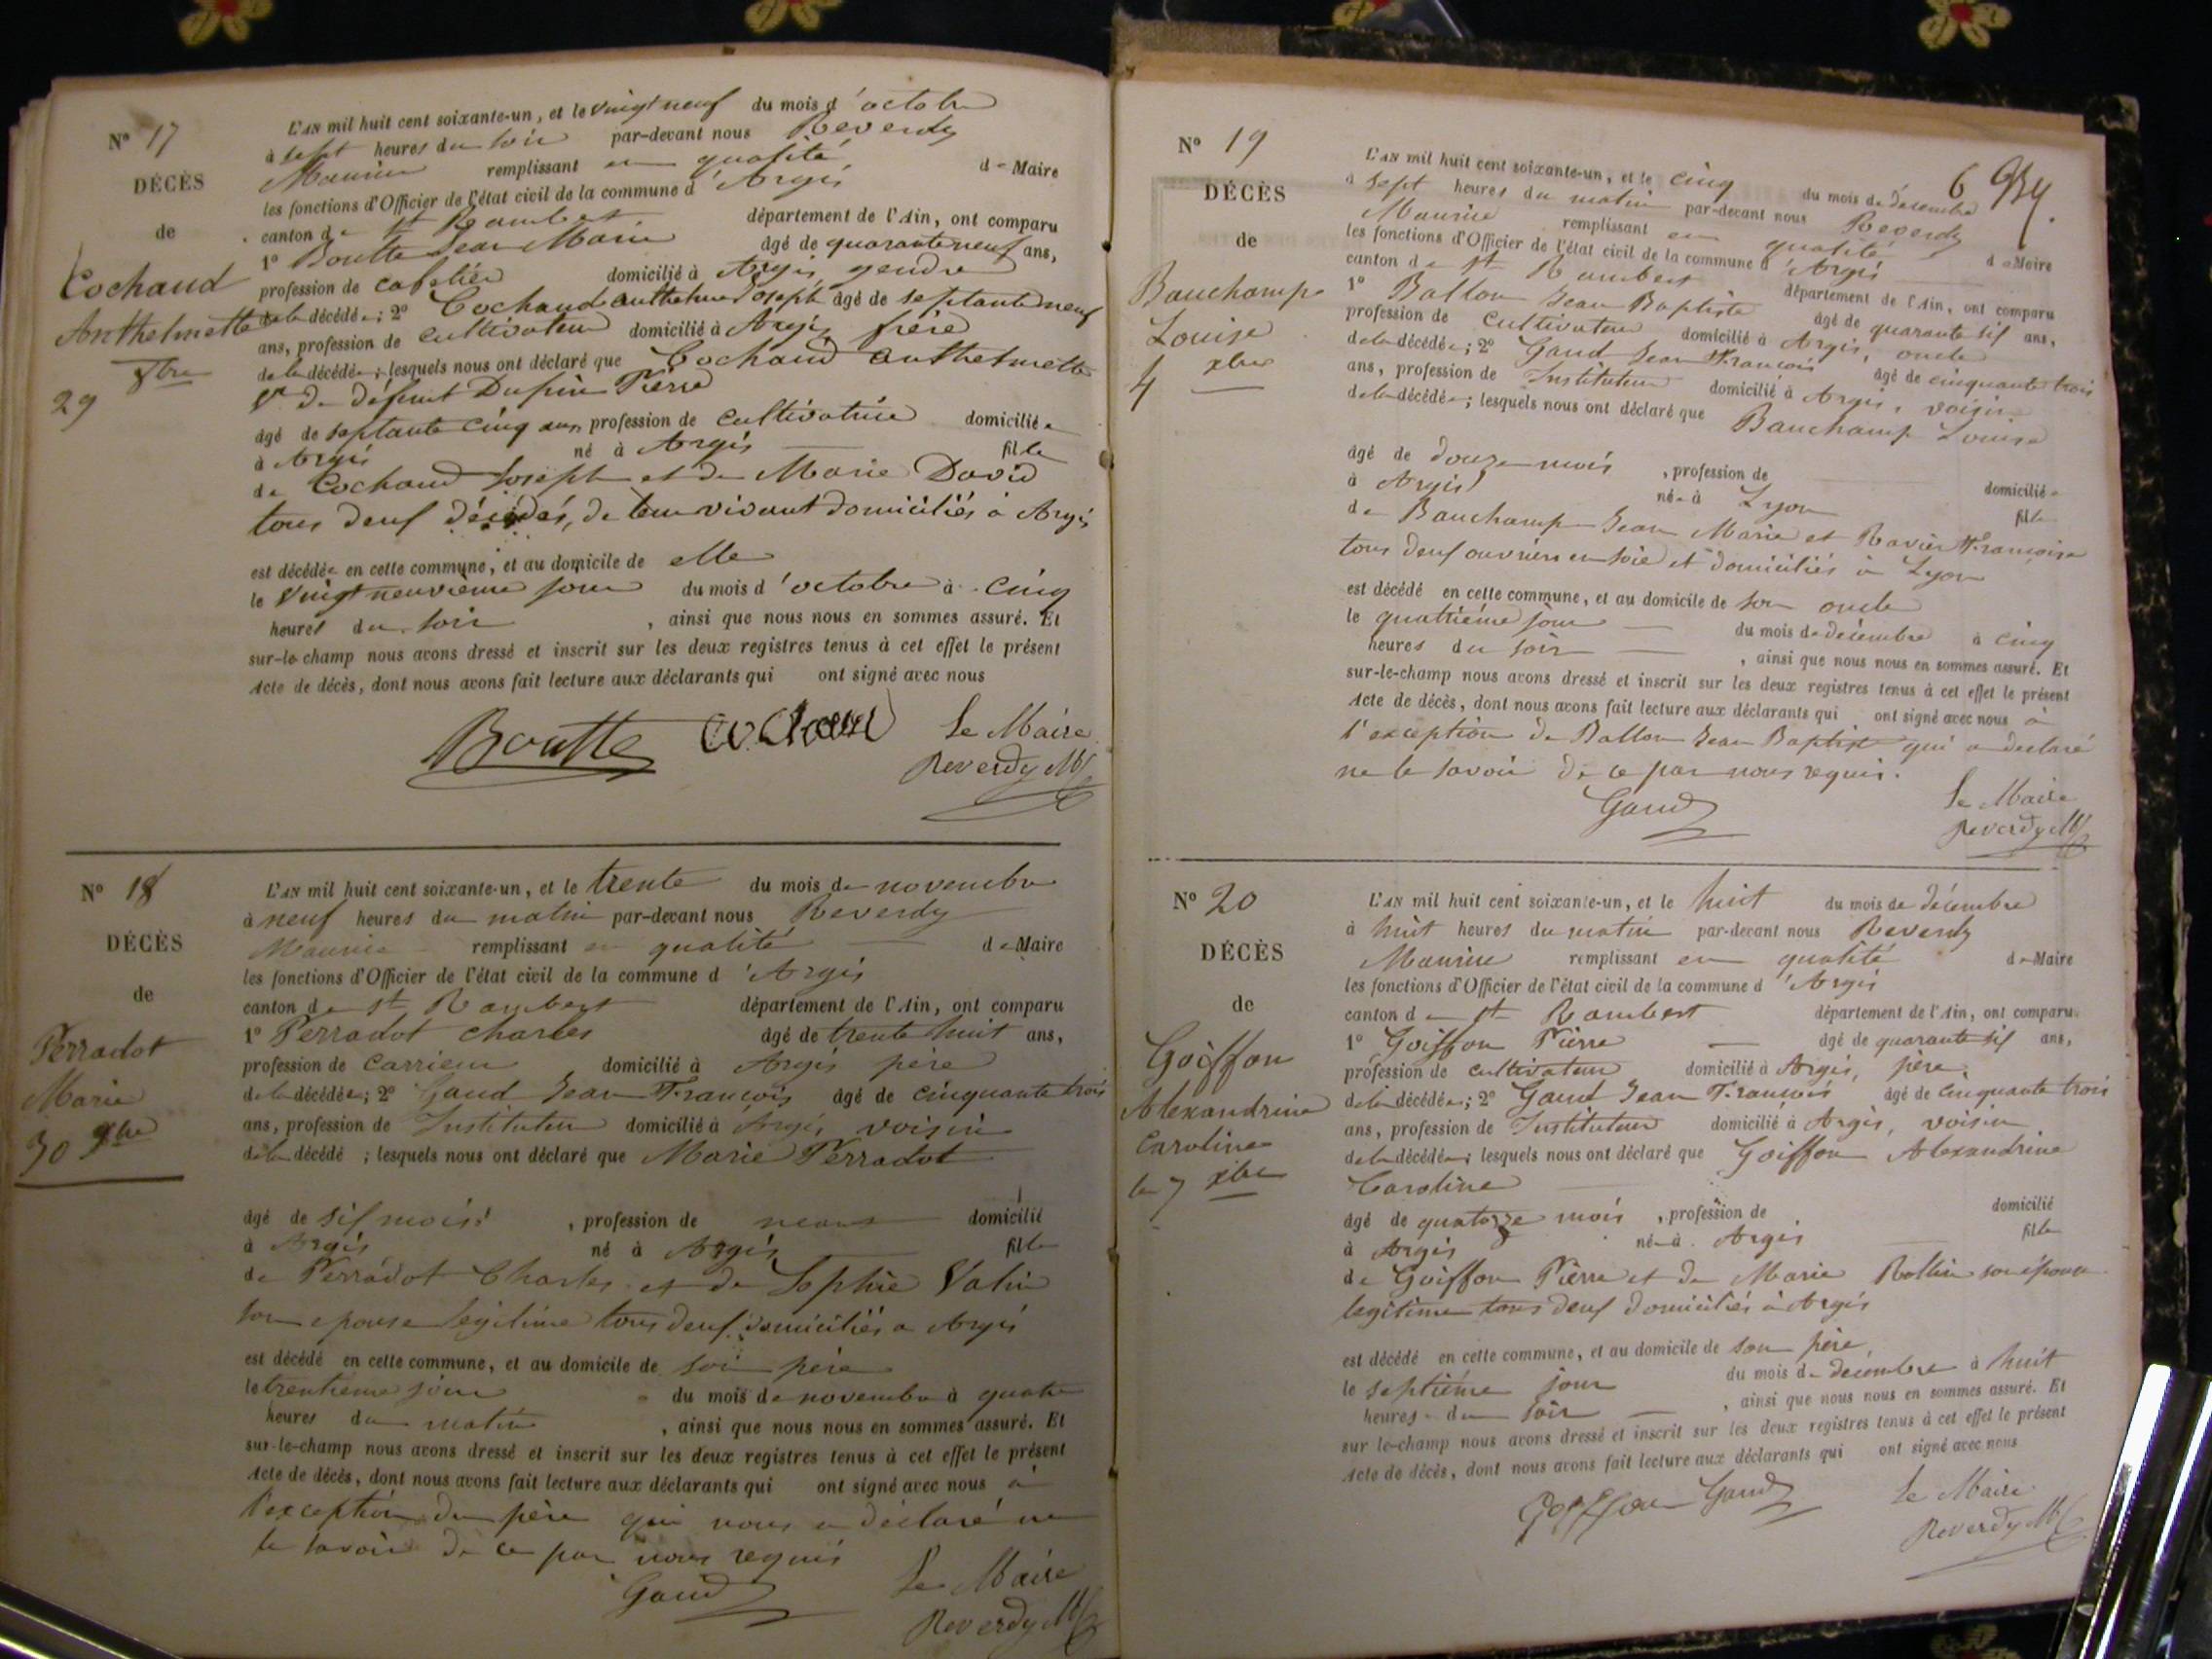 N° 17
DÉCÈS
de
Cochaud
Anthelmette
29 8bre
L'AN mil huit cent soixante-un, et le vingt neuf du mois d'octobre
à sept heures du soir par-devant nous Reverdy
Maurice remplissant en qualité de Maire
les fonctions d'Officier de l'état civil de la commune d'Argis
canton de St Rambert département de l'Ain, ont comparu
1° Boutte Jean Marie âgé de quarante neuf ans,
profession de cafetier domicilié à Argis gendre
de la décédée; 2° Cochaud anthelme Joseph âgé de septante neuf
ans, profession de cultivateur domicilié à Argis frère
de la décédée; lesquels nous ont déclaré que Cochaud anthelmette
Ve de défunt Dupin Pierre
âgé de septante cinq ans, profession de cultivatrice domiciliée
à Argis né à Argis fille
de Cochaud Joseph et de Marie David
tous deux décédés, de leur vivant domiciliés à Argis
est décédée en cette commune, et au domicile de elle
le vingt neuvième jour du mois d'octobre à cinq
heures du soir, ainsi que nous nous en sommes assuré. Et
sur-le-champ nous avons dressé et inscrit sur les deux registres tenus à cet effet le présent
Acte de décès, dont nous avons fait lecture aux déclarants qui ont signé avec nous
Boutte Cochaud Le Maire
Reverdy M
N° 18
DÉCÈS
de
Perradot
Marie
30 9bre
L'AN mil huit cent soixante-un, et le trente du mois de novembre
à neuf heures du matin par-devant nous Reverdy
Maurice remplissant en qualité de Maire
les fonctions d'Officier de l'état civil de la commune d'Argis
canton de St Rambert département de l'Ain, ont comparu
1° Perradot Charles âgé de trente huit ans,
profession de carrieur domicilié à Argis père
de la décédée; 2° Gaud Jean François âgé de cinquante trois
ans, profession de Instituteur domicilié à Argis voisin
de la décédé; lesquels nous ont déclaré que Marie Perradot
âgé de six mois, profession de domicilié
à Argis né à Argis fille
de Perradot Charles et de Sophie Valin
son epouse legitime tous deux domiciliés a Argis
est décédé en cette commune, et au domicile de son père
le trentieme jour du mois de novembre à quatre
heures du matin, ainsi que nous nous en sommes assuré. Et
sur-le-champ nous avons dressé et inscrit sur les deux registres tenus à cet effet le présent
Acte de décès, dont nous avons fait lecture aux déclarants qui ont signé avec nous à
l'exception du père qui nous a déclaré ne
le savoir de ce par nous requis
Gaud Le Maire
Reverdy M
N° 19
DÉCÈS
de
Bauchamp
Louise
4 xbre
6
L'AN mil huit cent soixante-un, et le cinq du mois de décembre
à sept heures du matin par-devant nous Reverdy
Maurice remplissant en qualité de Maire
les fonctions d'Officier de l'état civil de la commune d'Argis
canton de St Rambert département de l'Ain, ont comparu
1° Ballon Jean Baptiste âgé de quarante six ans,
profession de cultivateur domicilié à Argis, oncle
de la décédée; 2° Gaud Jean François âgé de cinquante trois
ans, profession de Instituteur domicilié à Argis, voisin
de la décédée; lesquels nous ont déclaré que Bauchamp Louise
âgé de douze mois, profession de domiciliée
à Argis née à Lyon fille
de Bauchamp Jean Marie et Ravier Françoise
tous deux ouvriers en soie et domiciliés à Lyon
est décédé en cette commune, et au domicile de son oncle
le quatrième jour du mois de décembre à cinq
heures du soir, ainsi que nous nous en sommes assuré. Et
sur-le-champ nous avons dressé et inscrit sur les deux registres tenus à cet effet le présent
Acte de décès, dont nous avons fait lecture aux déclarants qui ont signé avec nous à
l'exception de Ballon Jean Baptiste qui a declaré
ne le savoir de ce par nous requis.
Gaud Le Maire
Reverdy M
N° 20
DÉCÈS
de
Goiffon
Alexandrine
Caroline
le 7 xbre
L'AN mil huit cent soixante-un, et le huit du mois de décembre
à huit heures du matin par-devant nous Reverdy
Maurice remplissant en qualité de Maire
les fonctions d'Officier de l'état civil de la commune d'Argis
canton de St Rambert département de l'Ain, ont comparu
1° Goiffon Pierre âgé de quarante six ans,
profession de cultivateur domicilié à Argis, père
de la décédée; 2° Gaud Jean François âgé de cinquante trois
ans, profession de Instituteur domicilié à Argis, voisin
de la décédée; lesquels nous ont déclaré que Goiffon Alexandrine
Caroline
âgé de quatorze mois, profession de domicilié
à Argis née à Argis fille
de Goiffon Pierre et de Marie Rollin son épouse
legitime tous deux domiciliés à Argis
est décédé en cette commune, et au domicile de son père
le septième jour du mois de decembre à huit
heures du soir, ainsi que nous nous en sommes assuré. Et
sur-le-champ nous avons dressé et inscrit sur les deux registres tenus à cet effet le présent
Acte de décès, dont nous avons fait lecture aux déclarants qui ont signé avec nous
Goiffon Gaud Le Maire
Reverdy M